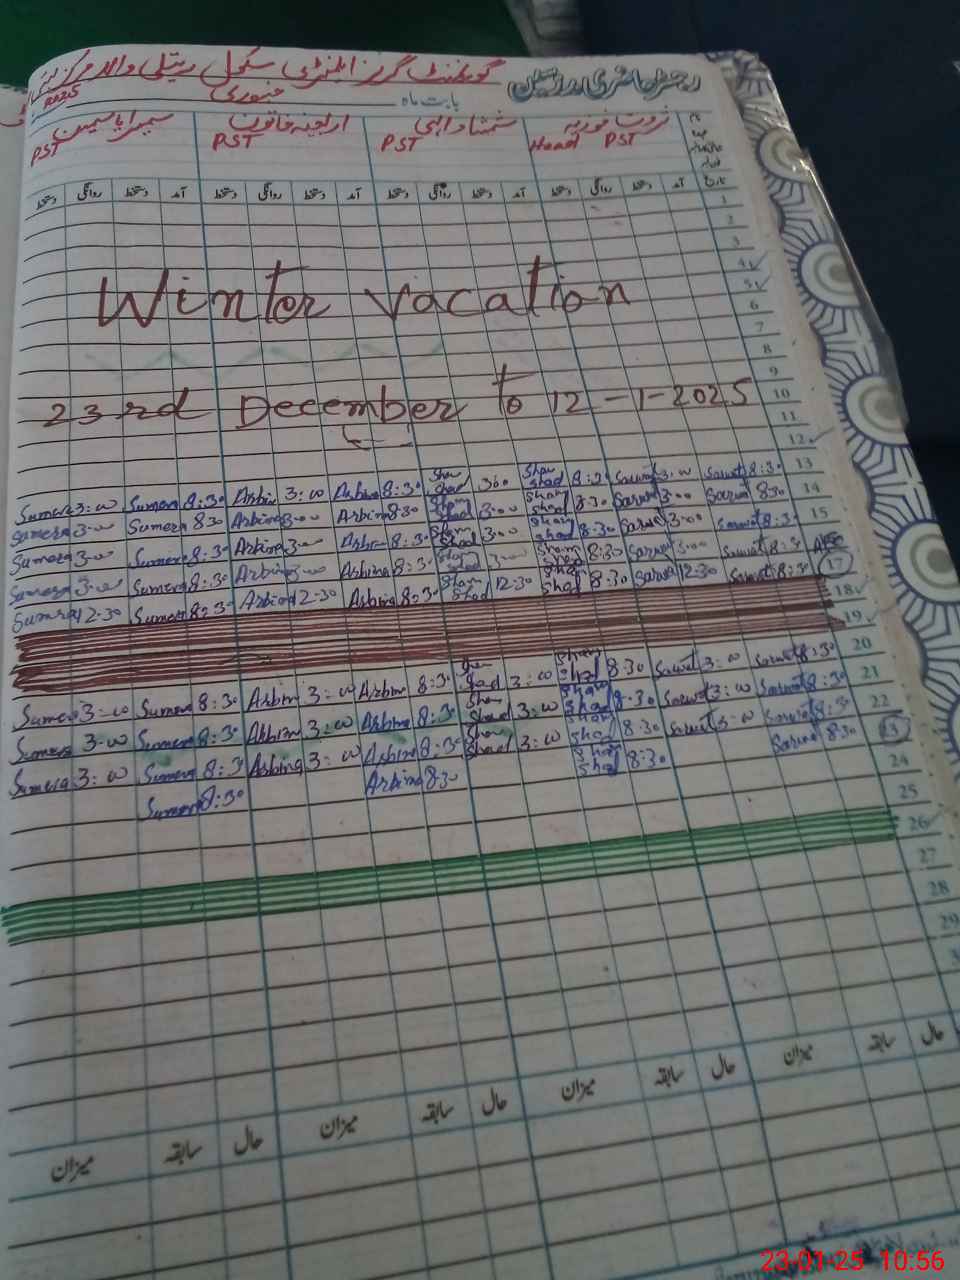 رجسٹر حاضری مدرسین گورنمنٹ گرلز ایلمنٹری سکول ریتلی والہ مرکز
بابت ماہ جنوری 2025
ثروت فوزیہ شمشاد الہی اربینہ خاتون سمیرا یاسمین
Head PST PST PST PST
تاریخ آمد دستخط روانگی دستخط آمد دستخط روانگی دستخط آمد دستخط روانگی دستخط آمد دستخط روانگی دستخط
1
2
3
4
5
6
Winter vacation
7
8
9
10
23rd December to 12-1-2025
11
12
13 Sarwat 8:30 Sarwat 3:00 Sham shad 8:30 Sham shad 3:00 Arbina 8:30 Arbina 3:00 Sumera 8:30 Sumera 3:00
14 Sarwat 8:30 Sarwat 3:00 Sham shad 8:30 Sham shad 3:00 Arbina 8:30 Arbina 3:00 Sumera 8:30 Sumera 3:00
15 Sarwat 8:30 Sarwat 3:00 Sham shad 8:30 Sham shad 3:00 Arbina 8:30 Arbina 3:00 Sumera 8:30 Sumera 3:00
Sarwat 8:30 Sarwat 3:00 Sham shad 8:30 Sham shad 3:00 Arbina 8:30 Arbina 3:00 Sumera 8:30 Sumera 3:00
17 Sarwat 8:30 Sarwat 12:30 Sham shad 8:30 Sham shad 12:30 Arbina 8:30 Arbina 12:30 Sumera 8:30 Sumera 12:30
18
19
20 Sarwat 8:30 Sarwat 3:00 Sham shad 8:30 Sham shad 3:00 Arbina 8:30 Arbina 3:00 Sumera 8:30 Sumera 3:00
21 Sarwat 8:30 Sarwat 3:00 Sham shad 8:30 Sham shad 3:00 Arbina 8:30 Arbina 3:00 Sumera 8:30 Sumera 3:00
22 Sarwat 8:30 Sarwat 3:00 Sham shad 8:30 Sham shad 3:00 Arbina 8:30 Arbina 3:00 Sumera 8:30 Sumera 3:00
23 Sarwat 8:30 Sham shad 8:30 Arbina 8:30 Sumera 8:30
24
25
26
27
28
29
حال سابقہ میزان حال سابقہ میزان حال سابقہ میزان حال سابقہ میزان
23-01-25 10:56